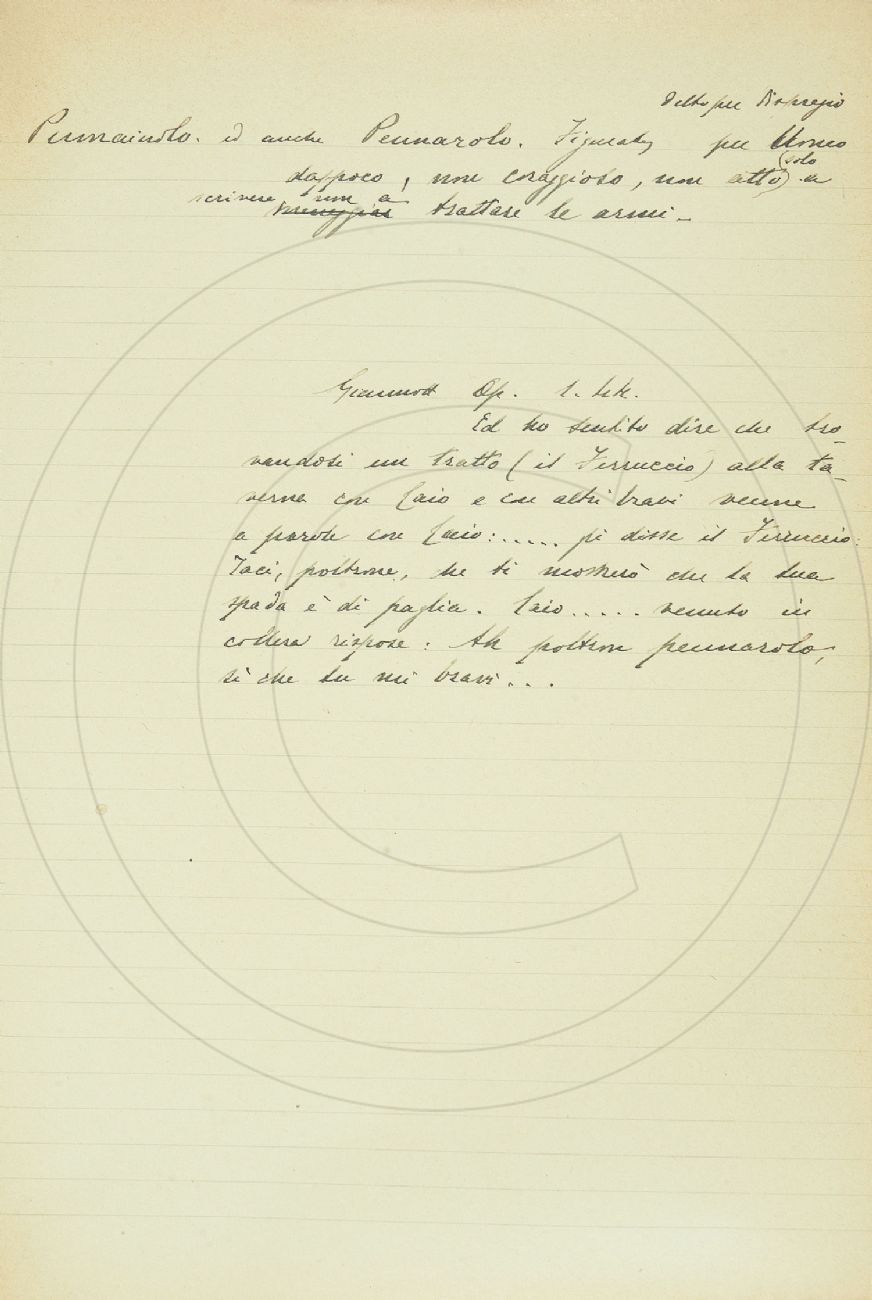 detto per dispregio
Pennaiuolo. ed anche Pennarolo. Figurat. per Uomo
dappoco, non coraggioso, non atto (solo) a
scrivere non a
maneggiare trattare le armi. -
Giannott Op. 1. Let.
Ed ho sentito dire che tro-
vandosi un tratto (il Ferruccio) alla ta-
verna con Caio e con altri bravi venne
a parole con Caio: ..... gli disse il Ferruccio:
Taci, poltrone, che ti mosterò che la tua
spada è di paglia. Caio ..... venuto in
collera rispose: Ah poltron pennarolo,
sì che tu mi bravi ...